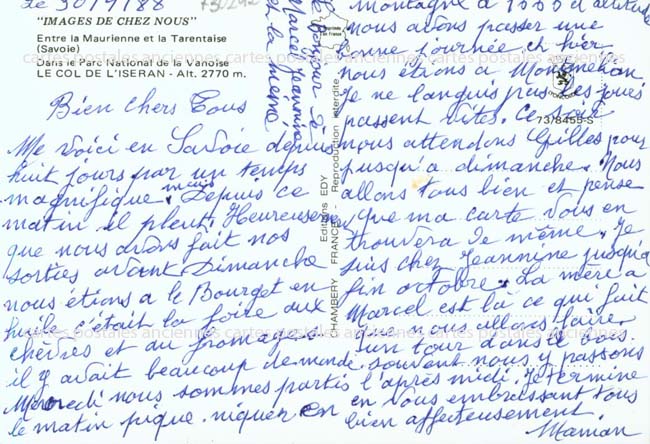 Le 30/9/88
"IMAGES DE CHEZ NOUS"
Entre la Maurienne et la Tarentaise
(Savoie)
dans le Parc National de la Vanoise
LE COL DE L'ISERAN - Alt. 2770 m.
Bien chers Tous
Me voici en Savoie depuis
huit jours par un temps
magnifique mais Depuis ce
matin il pleut. Heureusement
que nous avons fait nos
sorties avant Dimanche
nous étions a le Bourget en
huile c'était la foire aux
chèvres et au fromages.
il y avait beaucoup de monde.
Mercredi nous sommes partis
le matin pique. niquer en
montagne a 1550 d'altitude
nous avons passer une
bonne journée et hier
nous étions a Montmélian
Je ne languis pas les jours
passent vites. Ce soir
nous attendons Gilles pour
jusqu'a dimanche. Nous
allons tous bien et pense
que ma carte vous en
trouvera de même. Je
suis chez Jeannine jusqu'a
fin octobre. La mère a
Marcel est là ce qui fait
que nous allons faire
un tour dans le bois.
souvent nous y passons
l'après midi. Je termine
en vous embrassant tous
bien affectueusement.
Maman
le bonjour de
Marcel Jeannine
et la mémé
Editions EDY
CHAMBERY FRANCE - Reproduction interdite
73/8455-S
cartes postales anciennes cartes postales anciennes cartes postales anciennes
cartes postales anciennes cartes postales anciennes cartes postales anciennes